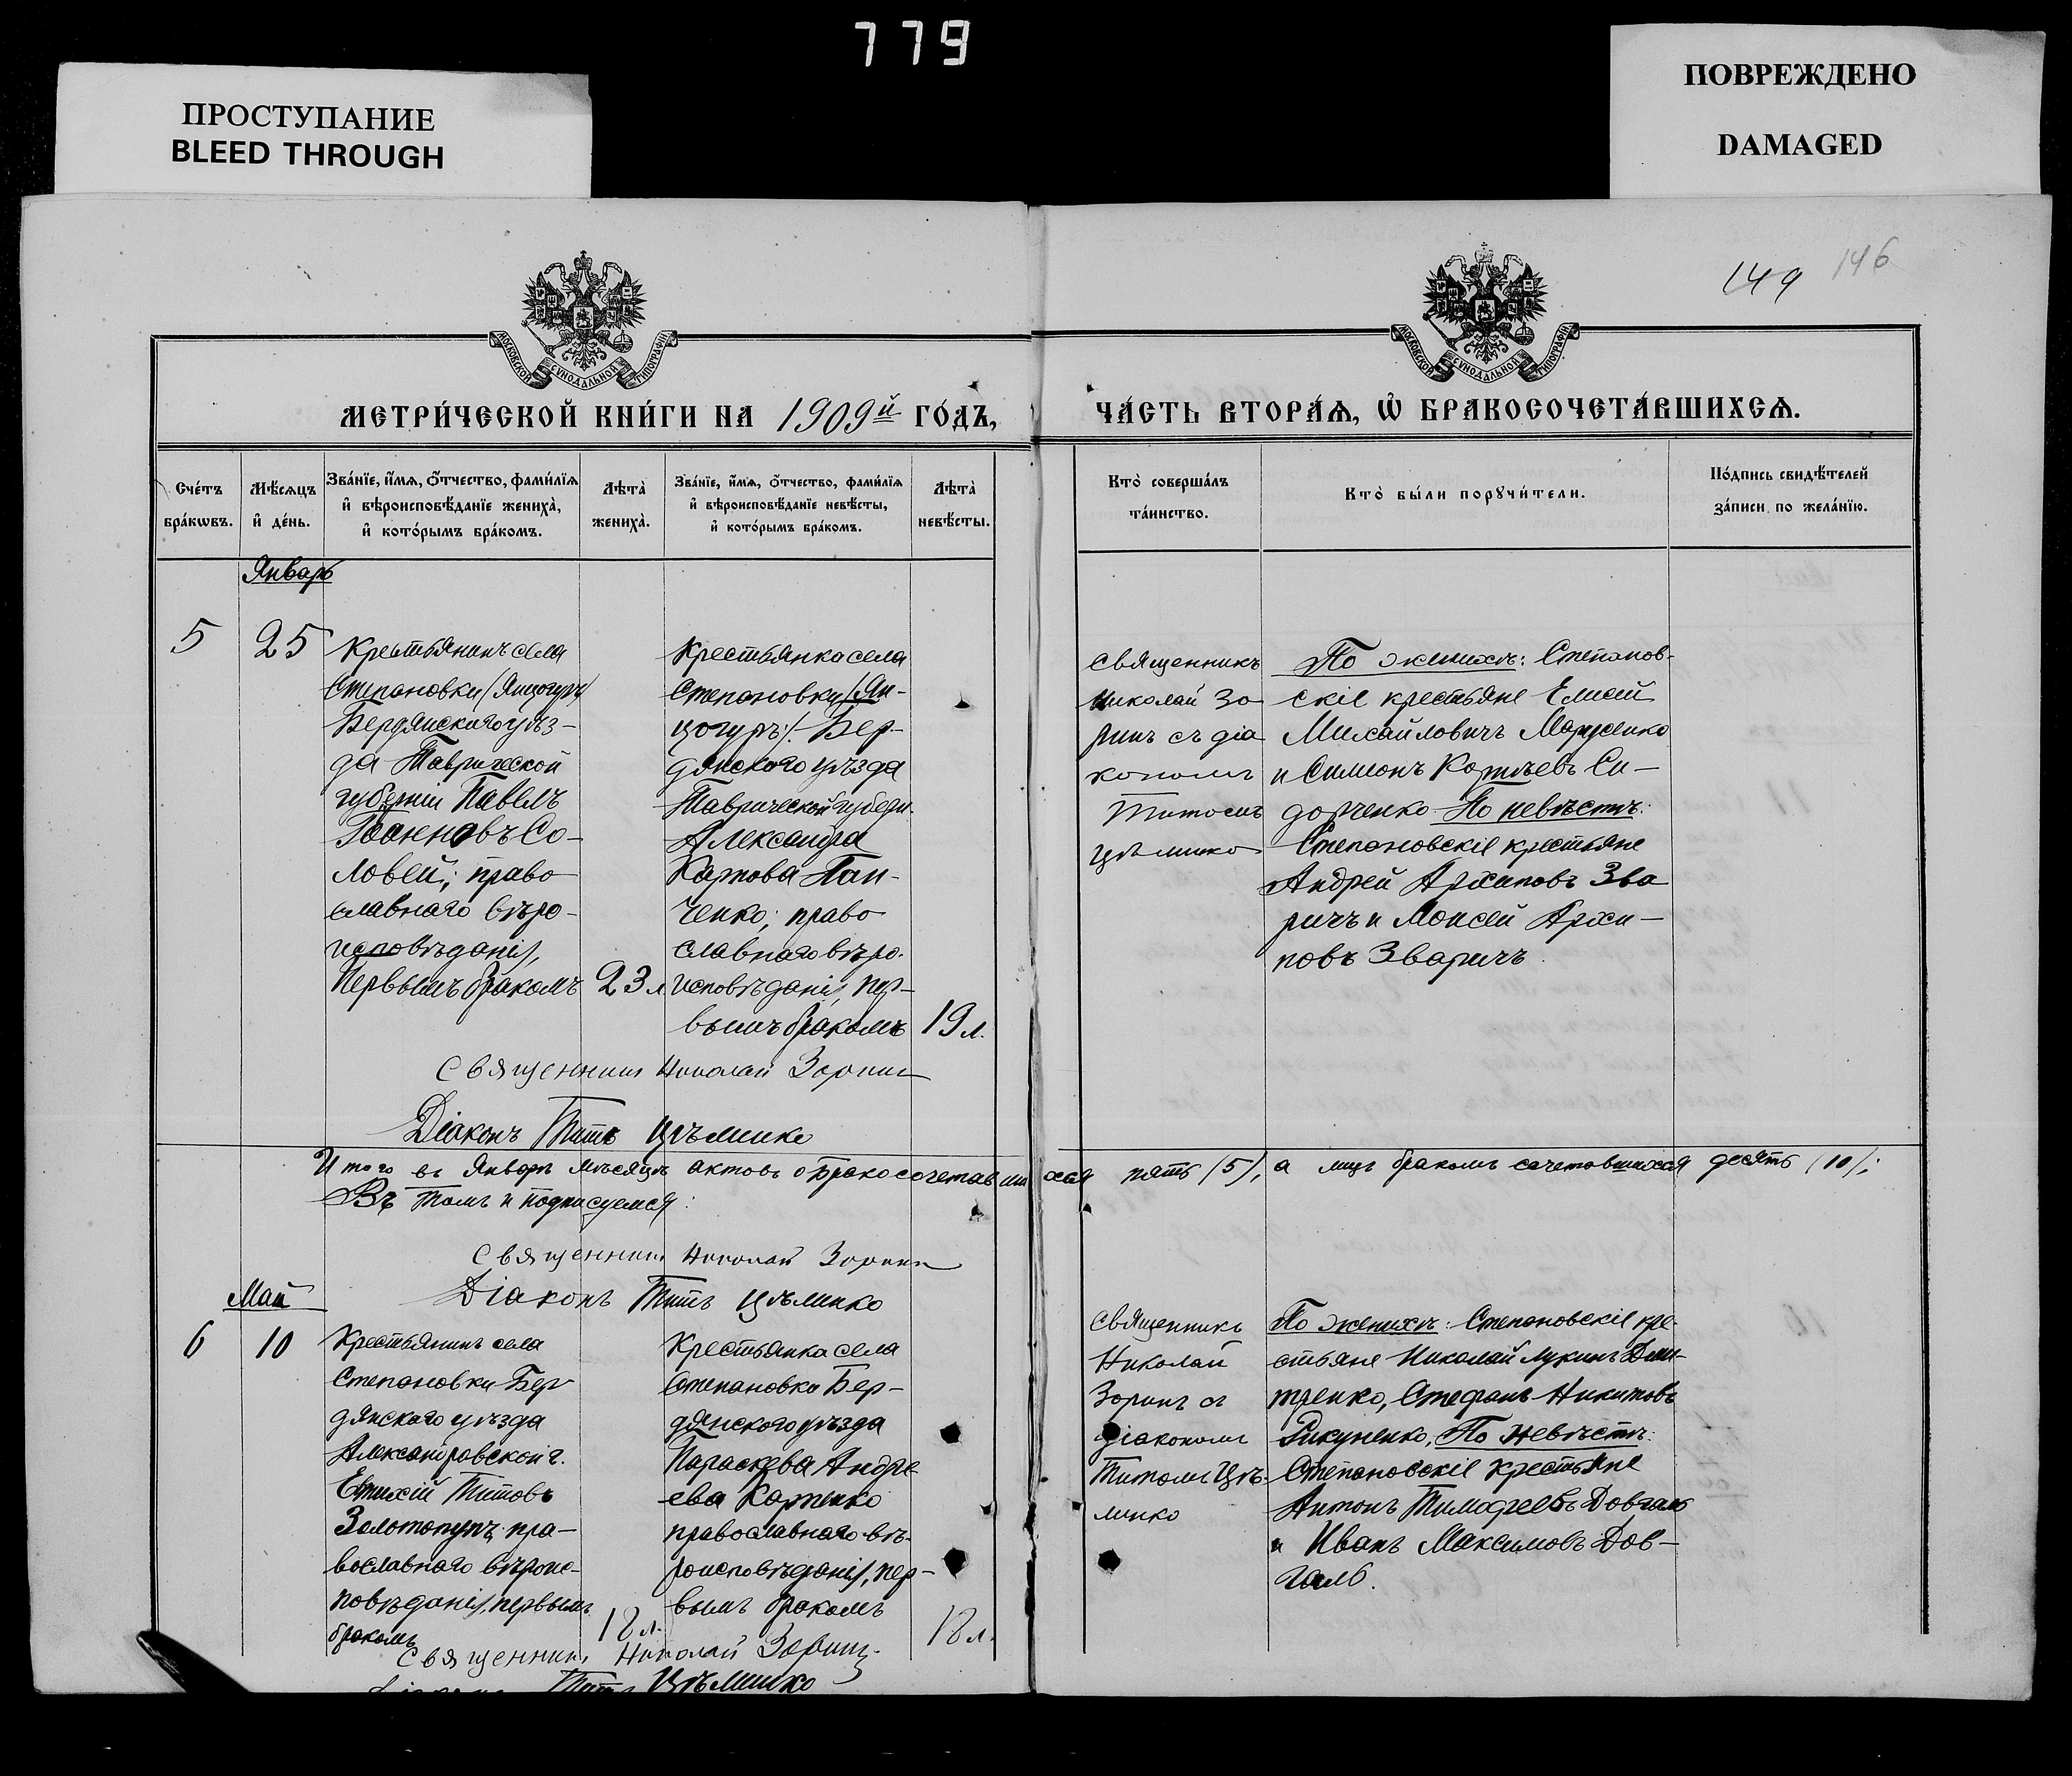 779
ПРОСТУПАНИЕ
BLEED THROUGH
ПОВРЕЖДЕНО
DAMAGED
149 146
МОСКОВСКОЙ СѴНОДАЛЬНОЙ ТИПОГРАФІИ
МОСКОВСКОЙ СѴНОДАЛЬНОЙ ТИПОГРАФІИ
МЕТРИ́ЧЕСКОЙ КНИ́ГИ НА 1909й ГО́ДЪ,
ЧА́СТЬ ВТОРА́Ѧ, Ѽ БРАКОСОЧЕТА́ВШИХСѦ.
Сче́тъ
бра́кѡвъ.
Мѣ́сѧцъ
и҆ де́нь.
Зва́нїе, и҆́мѧ, ѻ҆́тчество, фами́лїѧ
и҆ вѣроисповѣ́данїе жениха̀,
и҆ кото́рымъ бра́комъ.
Лѣта̀
жениха̀.
Зва́нїе, и҆́мѧ, ѻ҆́тчество, фами́лїѧ
и҆ вѣроисповѣ́данїе невѣ́сты,
и҆ кото́рымъ бра́комъ.
Лѣта̀
невѣ́сты.
Кто̀ соверша́лъ
та́инство.
Кто̀ бы́ли порꙋчи́тели.
По́дпись свидѣ́телей
за́писи по жела́нїю.
Январь
5
25
Крестьянинъ села
Степановки /Янцогуръ/
Бердянскаго уѣз-
да Таврической
губерніи Павелъ
Іоанновъ Со-
ловей; право
славнаго вѣро-
исповѣданія,
первымъ бракомъ
23 л
Крестьянка села
Степановки /Ян-
цогуръ/. Бер-
дянскаго уѣзда
Таврической губерн.
Александра
Карпова Пан-
ченко; право
славнаго вѣро-
исповѣданія, пер-
вымъ бракомъ
19 л.
Священникъ
Николай Зо
ринъ съ діа
кономъ
Титомъ
Цѣлинко
По женихѣ: Степанов-
скіе крестьяне Елисей
Михайловичъ Марусенко
и Симеонъ Корнѣевъ Си-
дорченко По невѣстѣ:
Степановскіе крестьяне
Андрей Архиповъ Зва
ричъ и Моисей Архи-
повъ Зваричъ.
Священникъ Николай Зоринъ
Діаконъ Титъ Цѣлинко
Итого въ Январѣ мѣсяцѣ актовъ о бракосочетавшихся пять (5), а лицъ бракомъ сочетавшихся десять (10);
Въ томъ и подписуемся:
Священникъ Николай Зоринъ
Діаконъ Титъ Цѣлинко
Май
6
10
Крестьянинъ села
Степановки Бер
дянскаго уѣзда
Александровской г.
Евтихій Титовъ
Золотопупъ; пра-
вославнаго вѣроис-
повѣданія, первымъ
бракомъ
18 л.
Крестьянка села
Степановки Бер-
дянскаго уѣзда
Параскева Андре
ева Карпенко
православнаго вѣ-
роисповѣданія, пер-
вымъ бракомъ
18 л.
Священникъ
Николай
Зоринъ съ
діакономъ
Титомъ Цѣ-
линко
По женихѣ: Степановскіе кре-
стьяне Николай Лукинъ Дми-
тренко, Стефанъ Никитовъ
По невѣстѣ:
Степановскіе крестьяне
Антонъ Тимофеевъ Довгаль
и Иванъ Максимовъ Дов-
галь.
Священникъ Николай Зоринъ
Діаконъ Титъ Цѣлинко